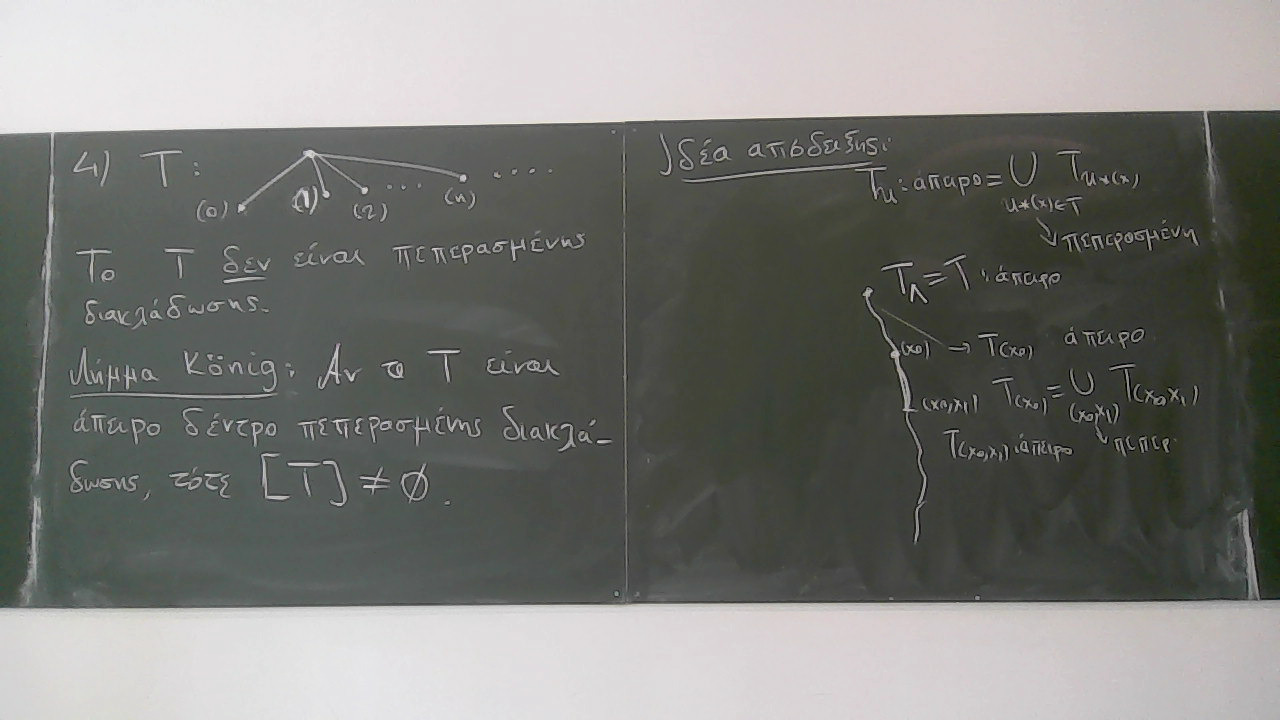 4) T:
(0) (1) (2) ... (n) ....
Το T δεν είναι πεπερασμένης
διακλάδωσης.
Λήμμα König: Αν το T είναι
άπειρο δέντρο πεπερασμένης διακλά-
δωσης, τότε [T] ≠ ∅.
Ιδέα απόδειξης:
T_u : άπειρο = ∪ T_{u*(x)}
u*(x)∈T
πεπερασμένη
T_Λ = T : άπειρο
(x₀) → T_(x₀) άπειρο
(x₀,x₁) T_(x₀) = ∪ T_(x₀,x₁)
(x₀,x₁)
T_(x₀,x₁) : άπειρο πεπερ.